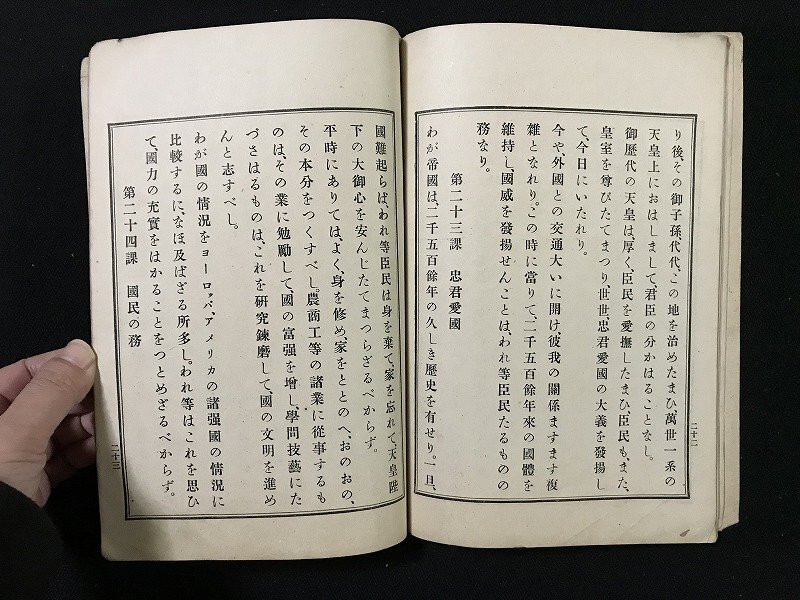 り後、その御子孫、代代、この地を治めたまひ、萬世一系の
天皇上におはしまして、君臣の分かはることなし。
御歴代の天皇は、厚く、臣民を愛撫したまひ、臣民も、また、
皇室を尊びたてまつり、世世、忠君愛國の大義を發揚し
て、今日にいたれり。
今や、外國との交通大いに開け、彼我の關係ますます復
雜となれり。この時に當りて、二千五百餘年來の國體を
維持し、國威を發揚せんことは、われ等臣民たるものの
務なり。
第二十三課 忠君愛國
わが帝國は、二千五百餘年の久しき歷史を有せり。一旦、
二十二
國難起らば、われ等臣民は身を棄て、家を忘れて、天皇陛
下の大御心を安んじたてまつらざるべからず。
平時にありては、よく、身を修め、家をととのへ、おのおの、
その本分をつくすべし。農商工等の諸業に從事するも
のは、その業に勉勵して、國の富强を增し、學問技藝にた
づさはるものは、これを研究鍊磨して、國の文明を進め
んと志すべし。
わが國の情況をヨーロッパ、アメリカの諸强國の情況に
比較するに、なほ及ばざる所多し。われ等はこれを思ひ
て、國力の充實をはかることをつとめざるべからず。
第二十四課 國民の務
二十三